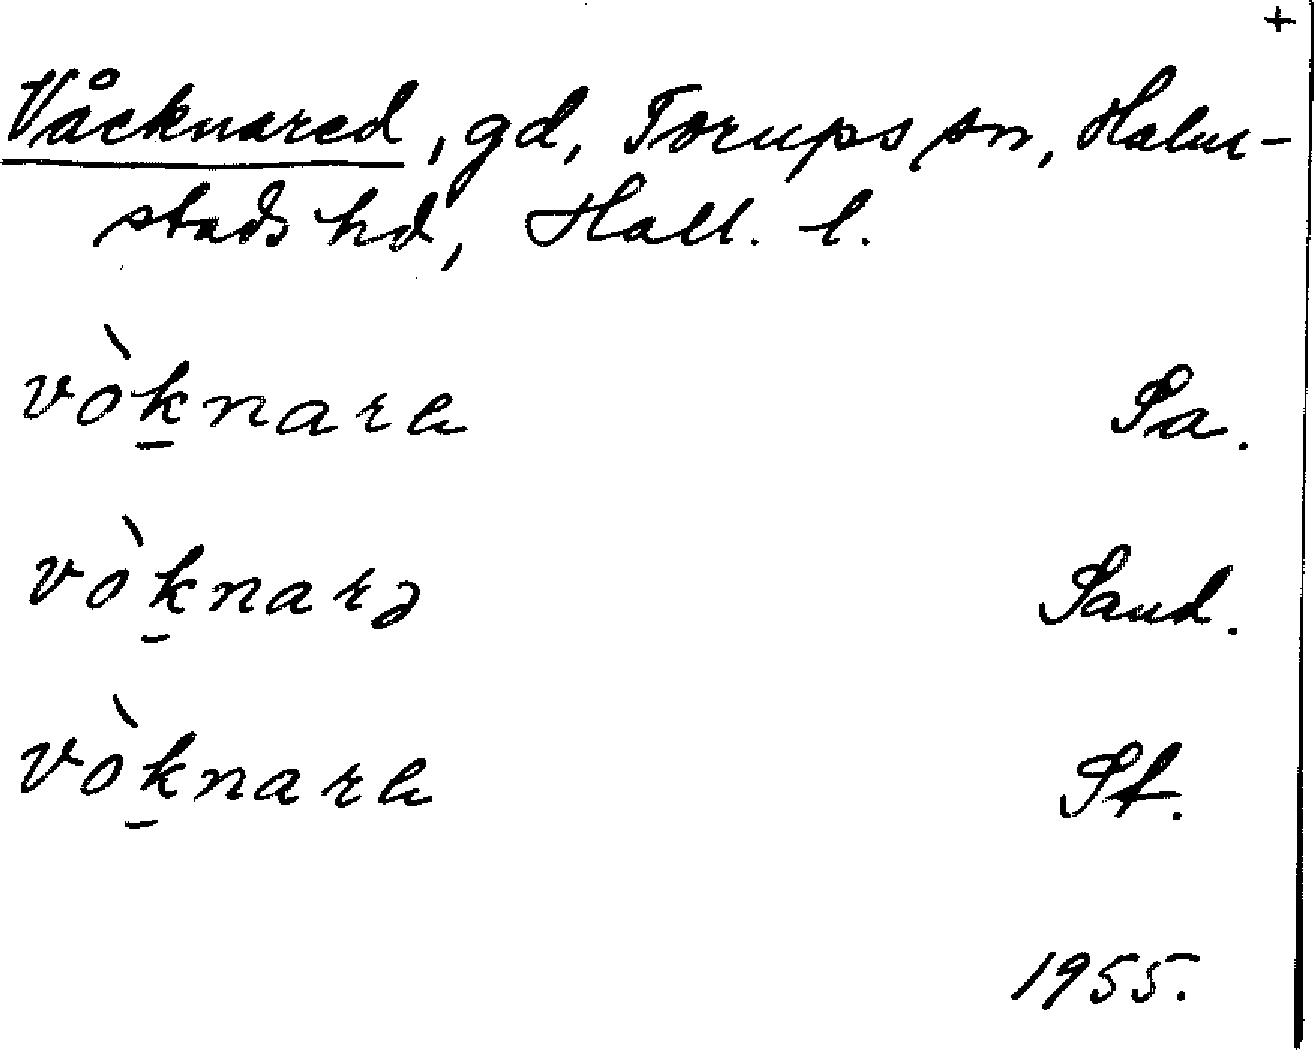 +
Våcknared, gd, Torups sn, Halm-
stads hd, Hall. l.
vò̱knara Sa.
vò̱knarə Sand.
vò̱knara St.
1955.